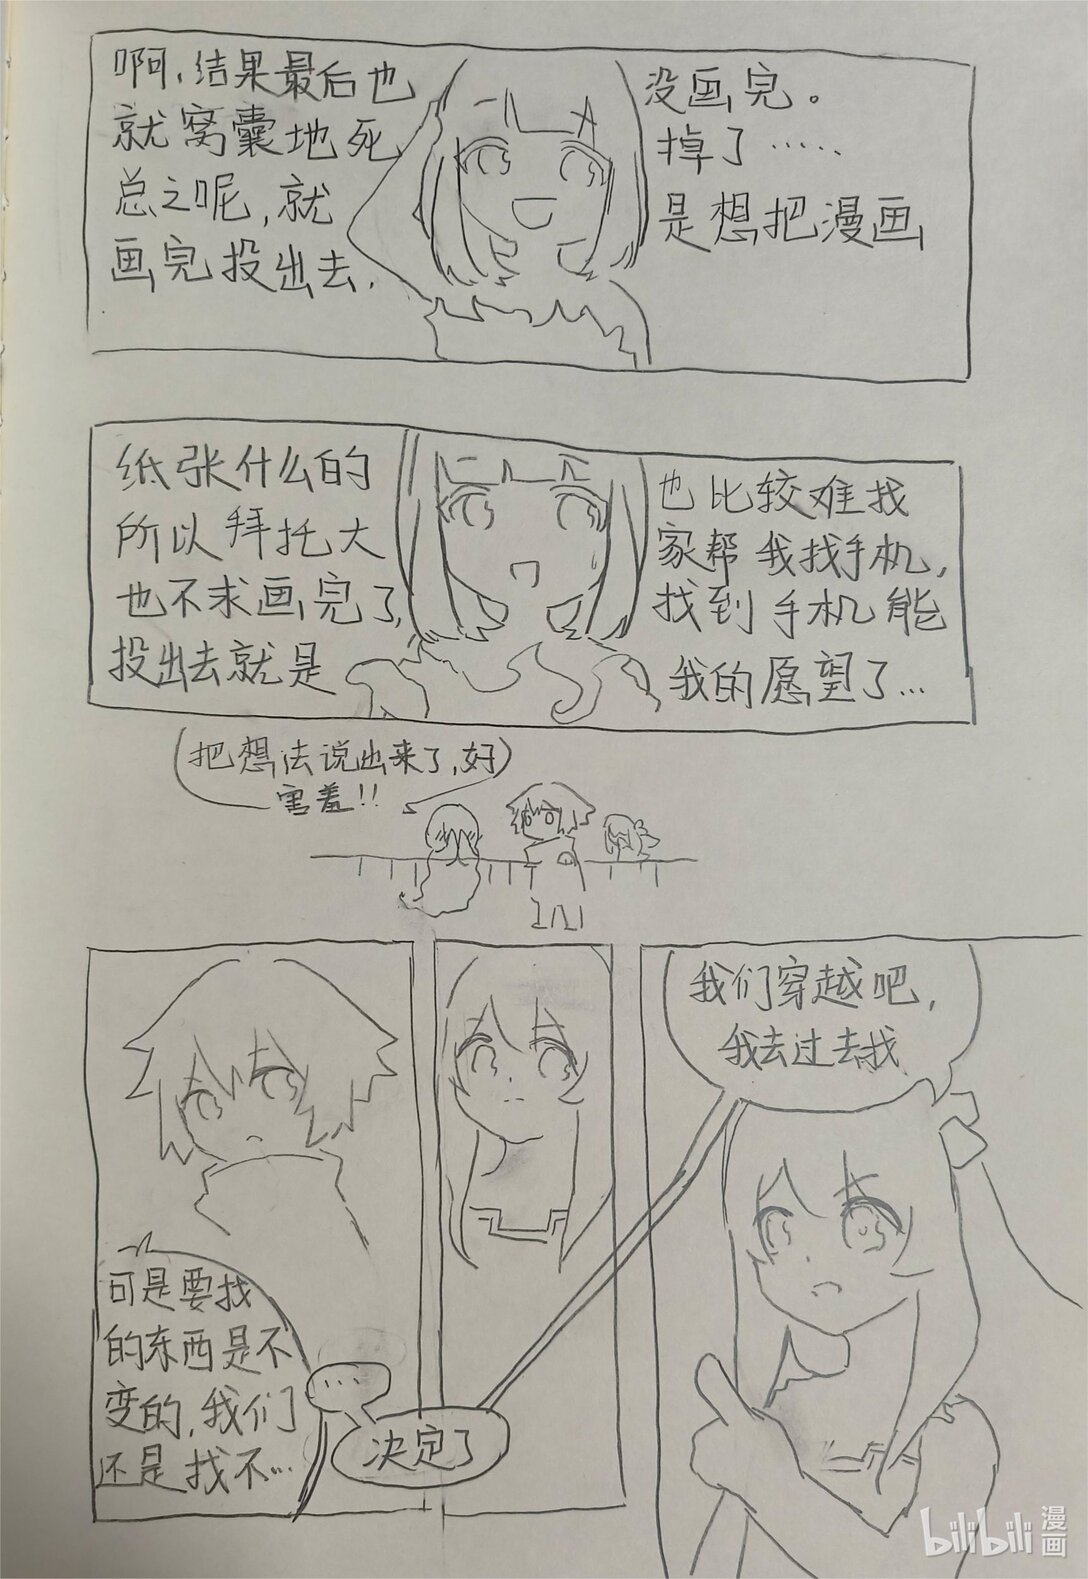 啊，结果最后也没画完。
就窝囊地死掉了……
总之呢，就是想把漫画
画完投出去，
纸张什么的也比较难找
所以拜托大家帮我找手机，
也不求画完了，找到手机能
投出去就是我的愿望了…
把想法说出来了，好
害羞!!
可是要找
的东西是不
变的，我们
还是找不…
…
决定了
我们穿越吧，
我去过去找
bilibili
漫画